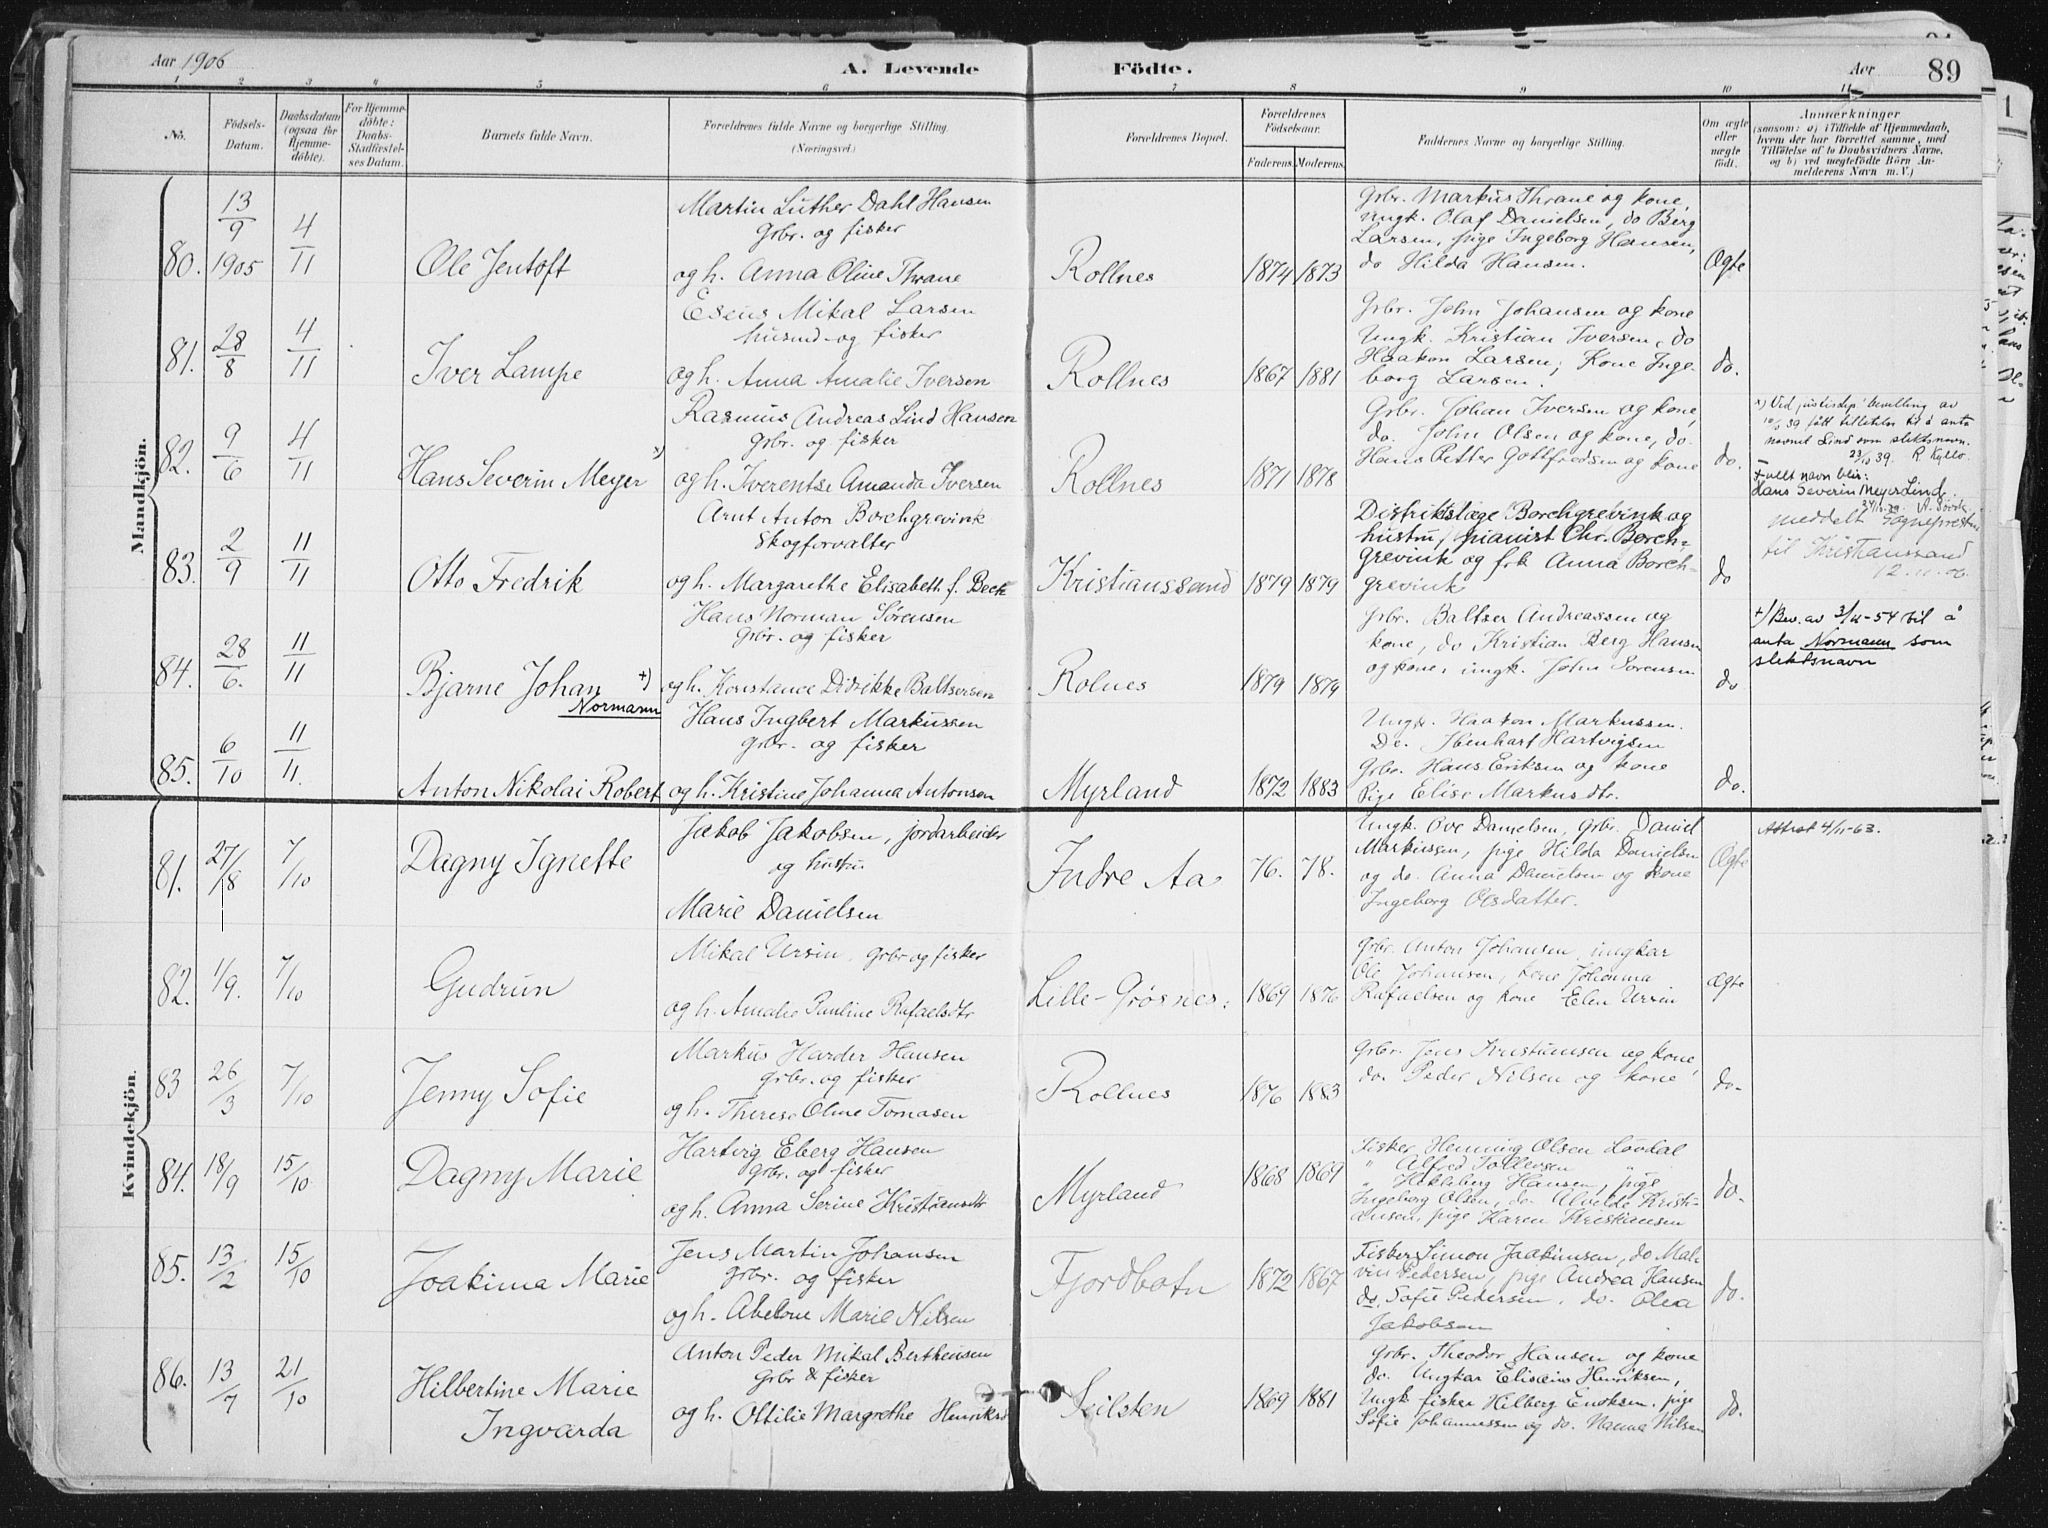 Aar 1906
A. Levende
Födte.
Aar
89
1 2 3 4 5 6 7 8 9 10 11
No.
Födsels-
Datum.
Daabsdatum
(ogsaa for
Hjemme-
døbte).
For Hjemme-
døbte:
Daabs-
Stadfæstel-
ses Datum.
Barnets fulde Navn.
Forældrenes fulde Navne og borgerlige Stilling.
(Næringsvei.)
Forældrenes Bopæl.
Forældrenes
Födselsaar.
Faderens. Moderens.
Faddernes Navne og borgerlige Stilling.
Om ægte
eller
uægte
födt.
Anmærkninger
(saasom: a) i Tilfælde af Hjemmedaab,
hvem der har forrettet samme, med
Tilföielse af to Daabsvidners Navne,
og b) ved uægtefödte Börn An-
melderens Navn m. V.)
Mandkjön.
80. 13/9 1905 4/11 Ole Jentoft
Martin Luther Dahl Hansen
Grbr. og fisker
og h. Anna Oline Thrane
Rollnes 1874 1873
Grbr. Markus Thrane og kone,
ungk. Olaf Danielsen, do Berg
Larsen, pige Ingeborg Hansen,
do Hilda Hansen.
Ægte
81. 28/8 4/11 Iver Lampe
Eseus Mikal Larsen
husmd. og fisker
og h. Anna Amalie Iversen
Rollnes 1867 1881
Grbr. John Johansen og kone
Ungk. Kristian Iversen, do
Haakon Larsen; Kone Inge-
borg Larsen.
do.
82. 9/6 4/11 Hans Severin Meyer x)
Rasmus Andreas Lind Hansen
Grbr. og fisker
og h. Iverentse Amanda Iversen
Rollnes 1871 1878
Grbr. Johan Iversen og kone,
do. John Olsen og kone, do.
Hans Petter Gottfredsen og kone
do.
x) Ved justisdep' bevilling av
10/10 39 fått tillatelse til å anta
navnet Lind som slektsnavn.
23/10 39. R. Kyllo.
Fullt navn blir:
Hans Severin Meyer Lind.
meddelt Sogneprest
til Kristianssand
12-11-06
83. 2/9 11/11 Otto Fredrik
Arnt Anton Borchgrevink
Skogforvalter
og h. Margarethe Elisabeth f. Beck
Kristianssand 1879 1879
Distriktslæge Borchgrevink og
hustru, pianist Chr. Borch-
grevink og frk Anna Borch-
grevink
do
84. 28/6. 11/11 Bjarne Johan +)
Normann
Hans Norman Sørensen
Grbr. og fisker
og h. Konstance Didrikke Baltsersen
Rolnes 1879 1879
Grbr. Baltser Andreassen og
kone, do Kristian Berg Hansen
og kone, ungk. John Sorensen
do
+) Bev. av 3/11-54 til å
anta Normann som
slektsnavn
85. 6/10 11/11. Anton Nikolai Robert
Hans Ingbert Markussen
Grbr. og fisker
og h. Kristine Johanna Antonsen
Myrland 1872 1883
Ungk. Haakon Markussen.
Do. Ibenhart Hartvigsen
Grbr. Hans Eriksen og kone
Pige Elise Markusdtr.
do.
Kvindekjön.
81. 27/8 7/10 Dagny Ignette
Jakob Jakobsen, jordarbeider
og hustru
Marie Danielsen
Indre Aa 76. 78.
Ungk. Ove Danielsen, Grbr. Daniel
Markussen, pige Hilda Danielsen
og do. Anna Danielsen og kone
Ingeborg Olsdatter.
Ægte
Attest 4/11-63.
82. 1/9. 7/10 Gudrun
Mikal Ursin, Grbr og fisker
og h. Amalie Pauline Rafaelsdtr
Lille-Grøsnes. 1869 1876
Grbr. Anton Johansen, ungkar
Ole Johansen, kone Johanna
Rafaelsen og kone Elen Ursin
Ægte
83 26/3 7/10 Jenny Sofie
Markus Harder Hansen
Grbr. og fisker
og h. Therese Oline Tomasen
Rollnes 1876 1883
Grbr. Jens Kristiansen og kone,
do. Peder Nilsen og kone
do.
84. 18/9 15/10 Dagny Marie
Hartvig Eberg Hansen
Grbr. og fisker
og h. Anna Serine Kristiansdtr
Myrland 1868 1869
Fisker Henning Olsen Lovdal
" Alfred Tollevsen "
" Hekleberg Hansen, pige
Ingeborg Olsen, do Alvilde Kristi-
ansen, pige Karen Kristiansen
do.
85. 13/2 15/10 Joakima Marie
Jens Martin Johansen
Grbr. og fisker
og h. Abelone Marie Nilsen
Fjordbotn 1872 1867
Fisker Simon Joakimsen, do Mal-
vin Pedersen, pige Andrea Hansen
do. Sofie Pedersen, do. Olea
Jakobsen
do.
86. 13/7 21/10 Hilbertine Marie
Ingvarda
Anton Peder Mikal Berthensen
Grbr & fisker
og h. Ottilie Margrethe Henriksd
Seilsten 1869 1881
Grbr. Theodor Hansen og kone
do. Ungkar Elisæus Henriksen,
Ungk. fisker Hilberg Enoksen, pige
Sofie Johannessen og do. Nanna Nilsen
do.